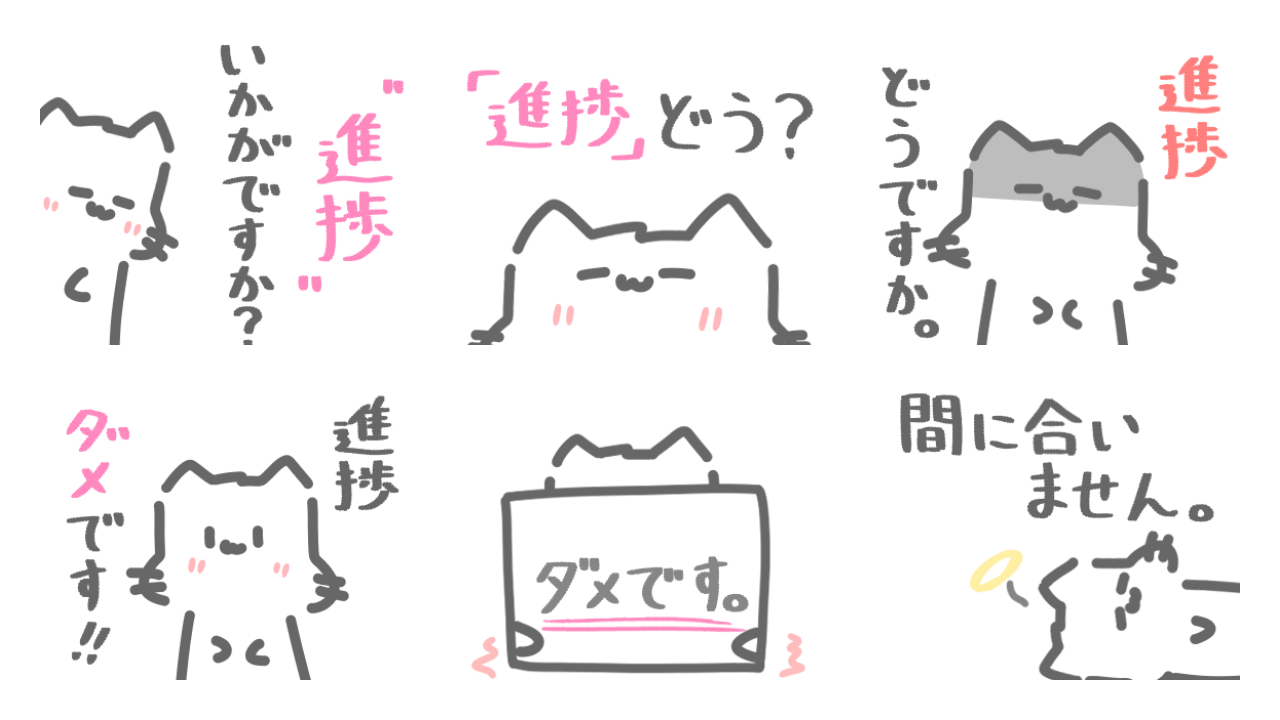 "進捗"
いかがですか?
「進捗」どう?
進捗
どうですか。
進捗
ダメです!!
ダメです。
間に合い
ません。